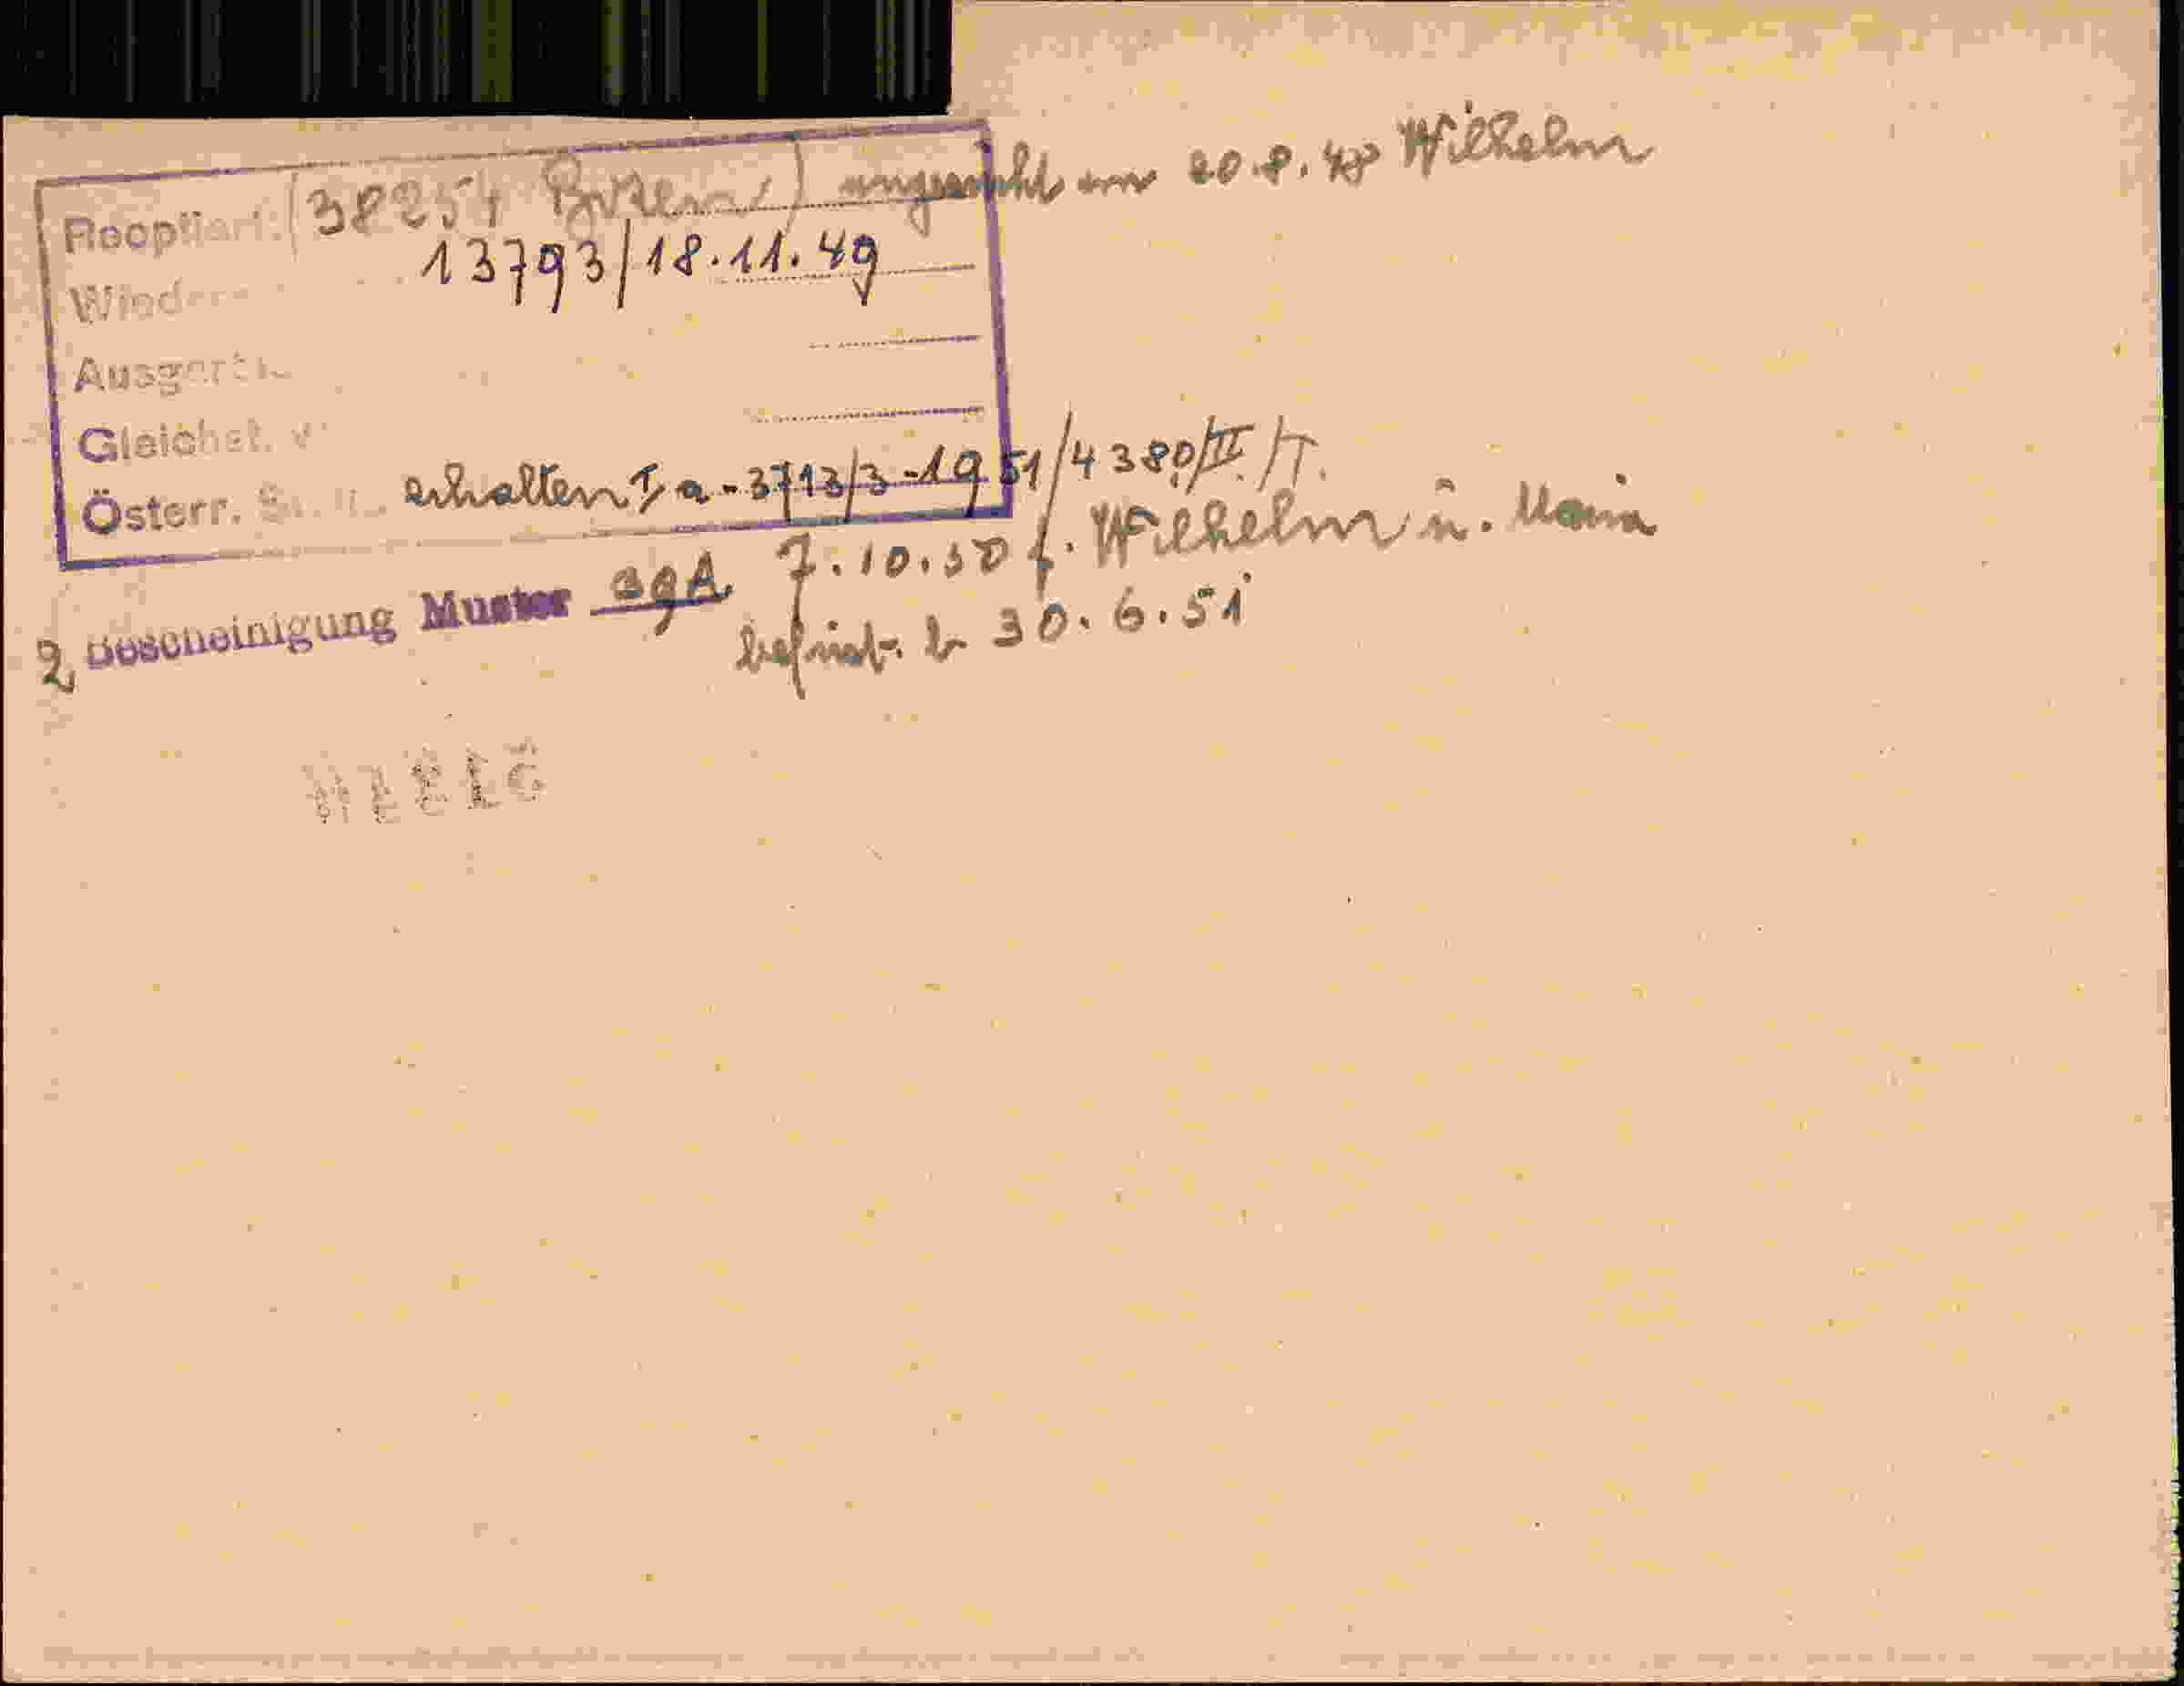 Reoptiert. (38254 Bozen) am 20.8.48 Wilhelm
13793/18.11.49
Gleichst.
Österr. erhalten Ia-3713/3-1951/4380/II/T.
2 Bescheinigung Muster agA 7.10.50 f. Wilhelm u. Maria
befrist. b. 30.6.51